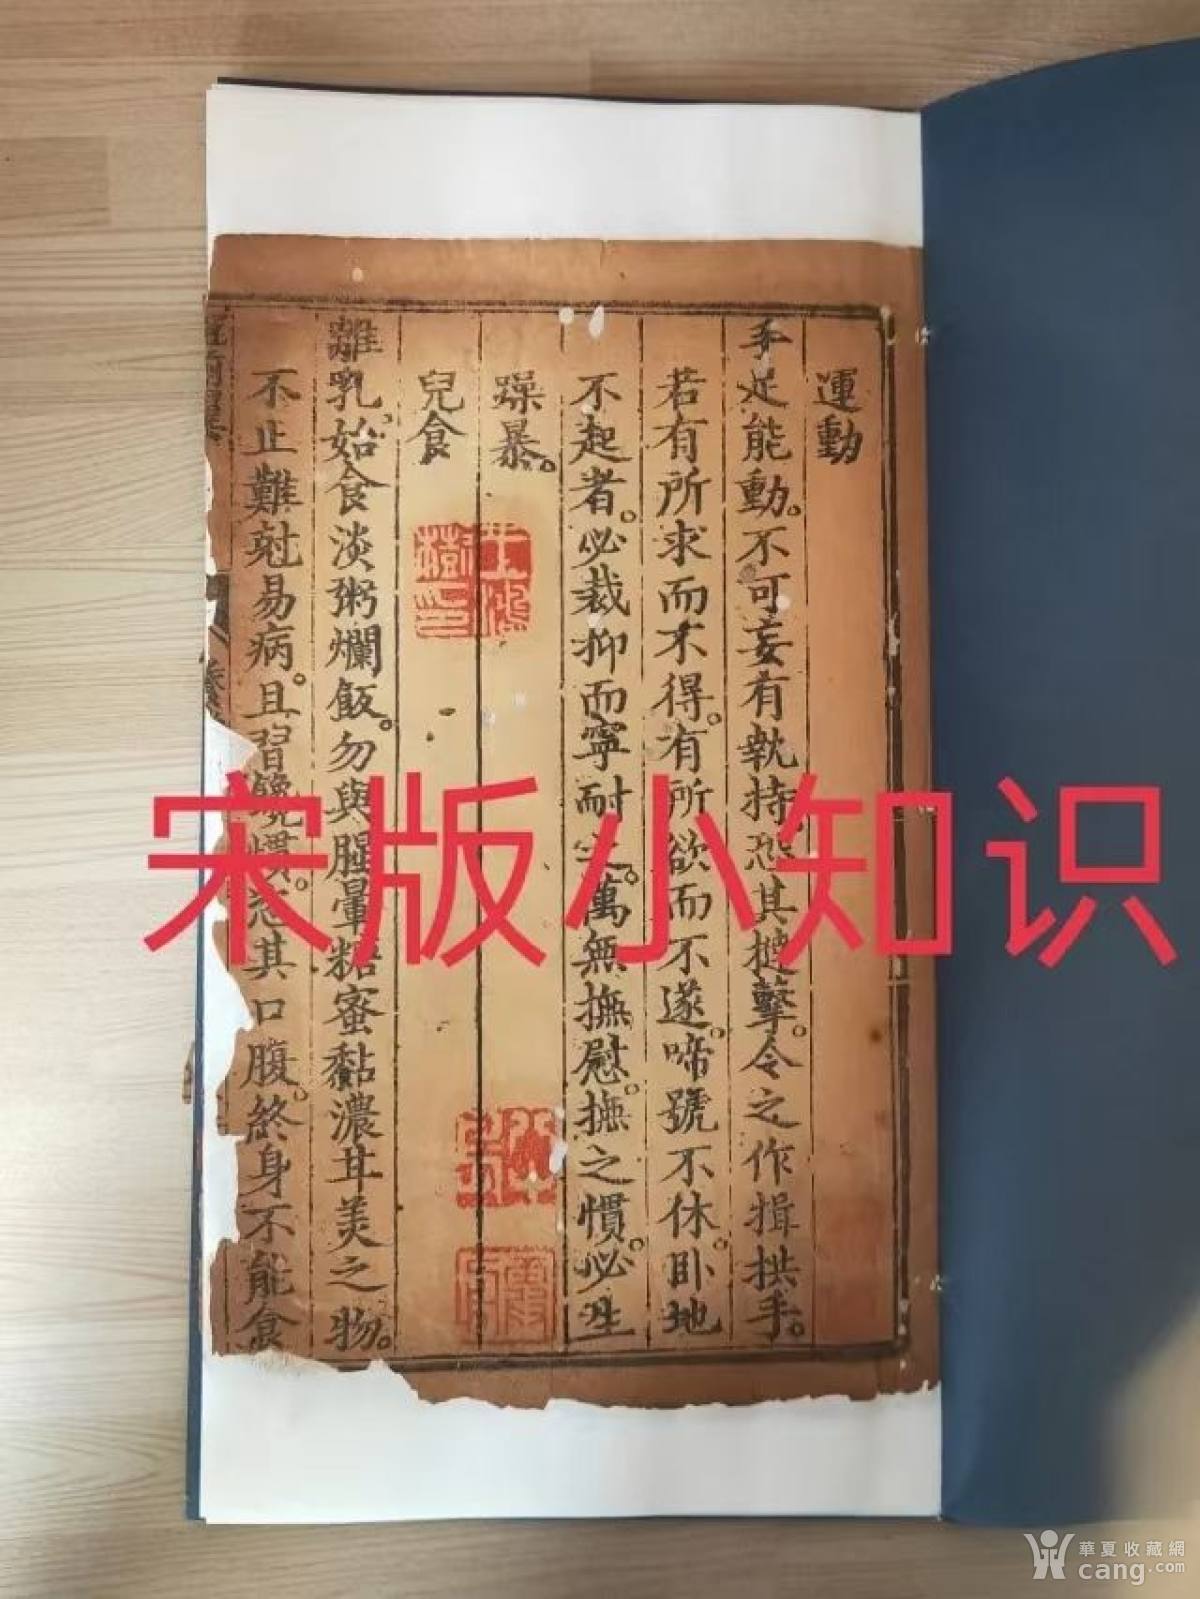 運動
手足能動。不可妄有執持。恐其撻擊。令之作揖拱手。
若有所求而不得。有所欲而不遂。啼號不休。卧地
不起者。必裁抑而寧耐之。萬無撫慰。撫之慣。必生
躁暴。
兒食
離乳。始食淡粥爛飯。勿與腥葷糖蜜黏濃甘美之物。
不止難尅易病。且習饞慣。恣其口腹。終身不能食
宋版小知识
華夏收藏網
cang.com